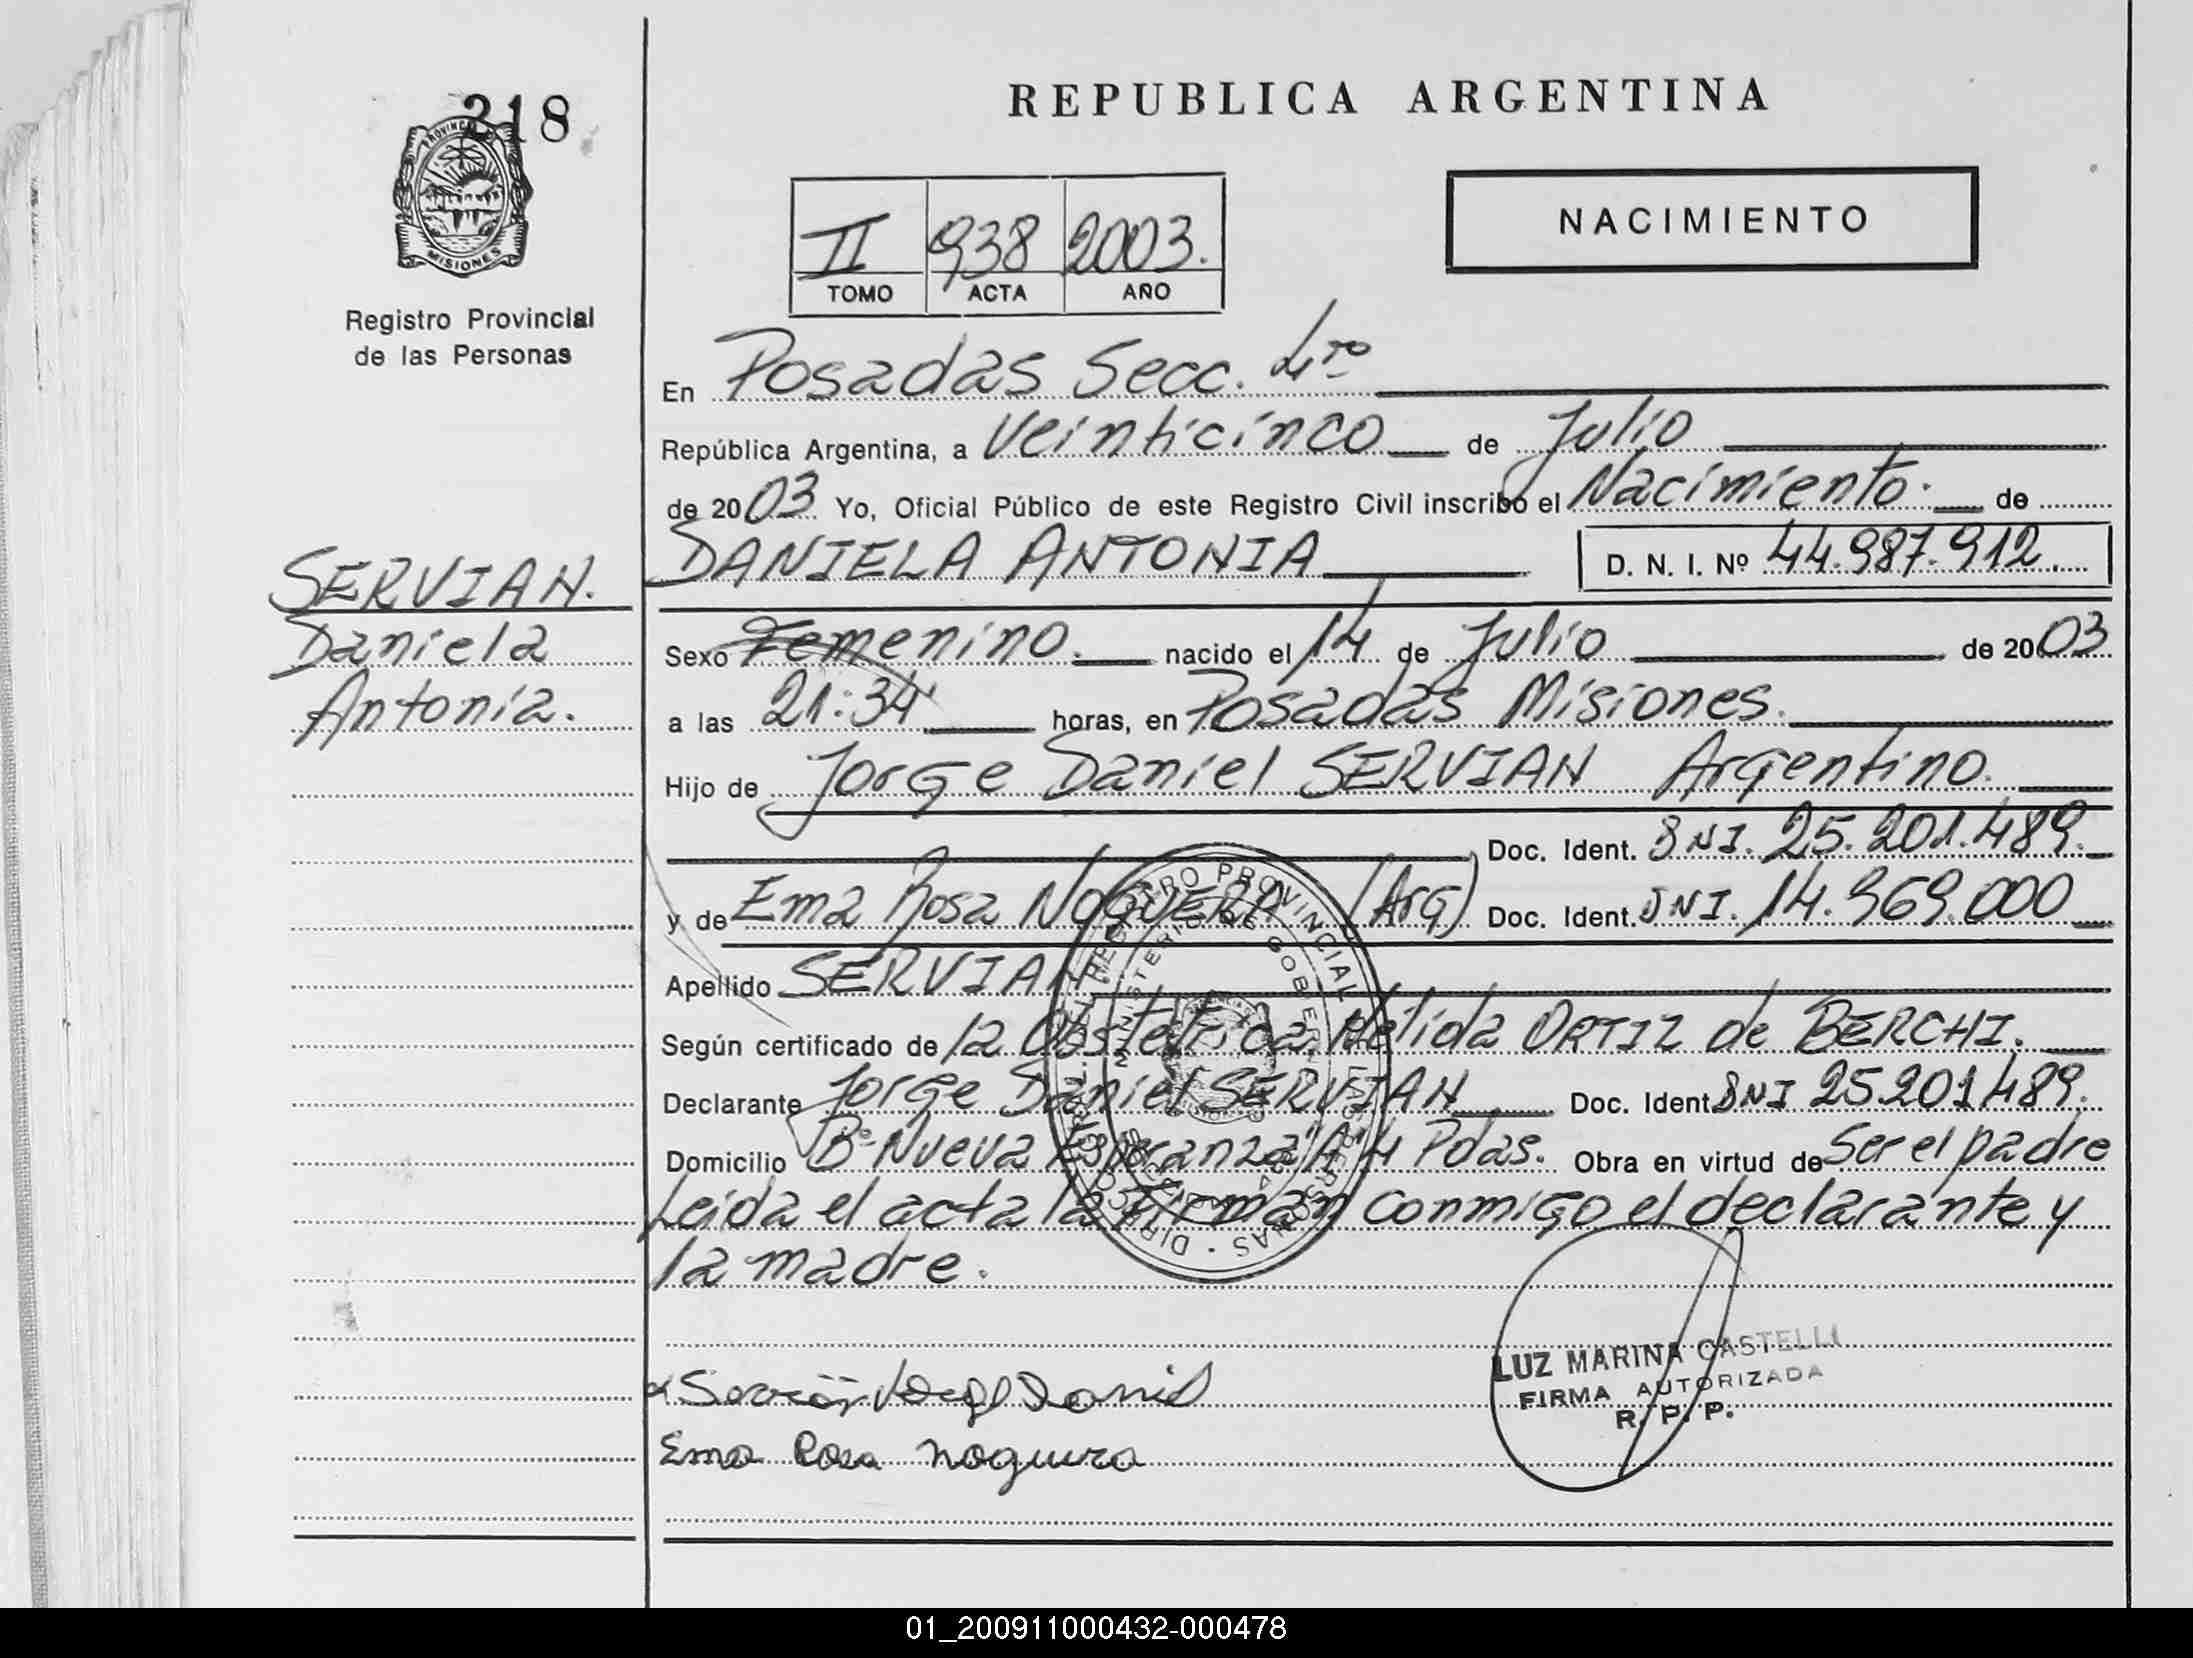 218
PROVINCIA
MISIONES
Registro Provincial
de las Personas
REPUBLICA ARGENTINA
NACIMIENTO
II 938 2003.
TOMO ACTA AÑO
En Posadas Secc. 4to
República Argentina, a Veinticinco de Julio
de 2003 Yo, Oficial Público de este Registro Civil inscribo el Nacimiento. de
DANIELA ANTONIA D. N. I. Nº 44.987.912.
SERVIAN.
Daniela
Antonia.
Sexo Femenino. nacido el 14 de Julio de 2003
a las 21:34 horas, en Posadas Misiones.
Hijo de Jorge Daniel SERVIAN Argentino.
Doc. Ident. DNI. 25.201.489.
y de Ema Rosa NOGUERA (Arg) Doc. Ident. DNI. 14.969.000
Apellido SERVIAN
Según certificado de la Obstetrica Hélida ORTIZ de BERCHI.
Declarante Jorge Daniel SERVIAN Doc. Ident DNI 25.201.489.
Domicilio Bº Nueva Esperanza "A" 4 Pdas. Obra en virtud de Ser el padre
Leida el acta la Firman conmigo el declarante y
la madre.
DIRECCION GRAL. DEL REGISTRO PROVINCIAL DE LAS PERSONAS
MINISTERIO DE GOBIERNO
LUZ MARINA CASTELLI
FIRMA AUTORIZADA
R. P. P.
Servian Jorge Daniel
Ema Rosa Noguera
01_200911000432-000478